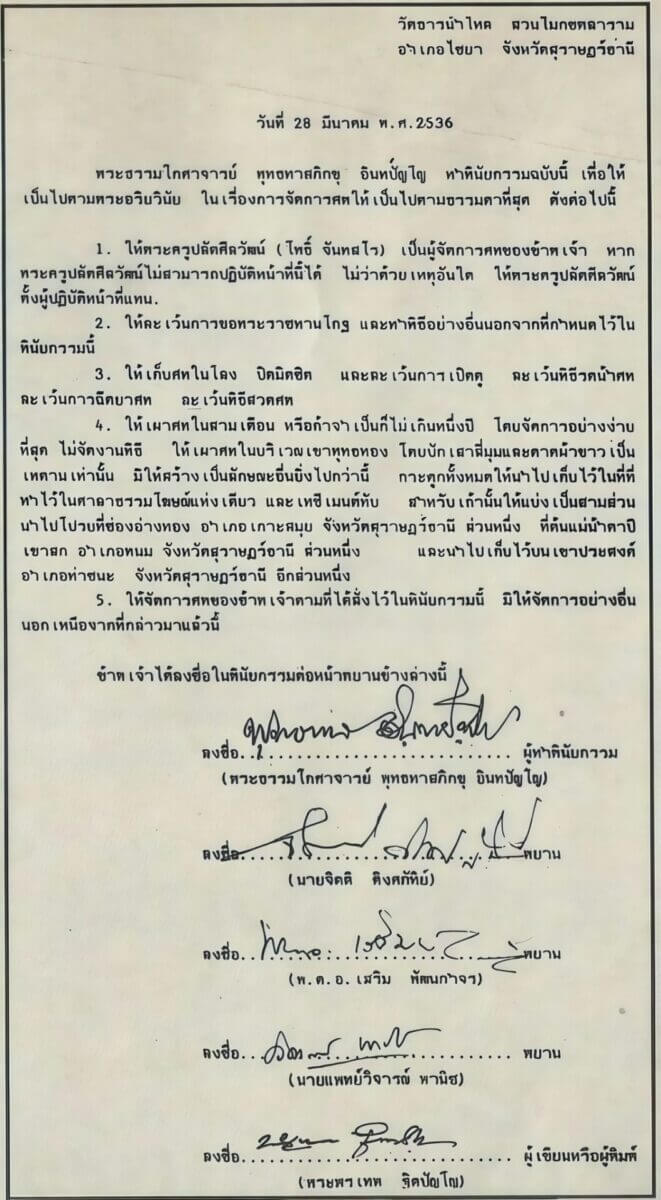 วัดธารน้ำไหล สวนโมกขพลาราม
อำเภอไชยา จังหวัดสุราษฎร์ธานี
วันที่ 28 มีนาคม พ.ศ.2536
พระธรรมโกศาจารย์ พุทธทาสภิกขุ อินทปัญโญ ทำพินัยกรรมฉบับนี้ เพื่อให้
เป็นไปตามพระอริยวินัย ในเรื่องการจัดการศพให้เป็นไปตามธรรมดาที่สุด ดังต่อไปนี้
1. ให้พระครูปลัดศีลวัฒน์ (โพธิ์ จันทสโร) เป็นผู้จัดการศพของข้าพเจ้า หาก
พระครูปลัดศีลวัฒน์ไม่สามารถปฏิบัติหน้าที่นี้ได้ ไม่ว่าด้วยเหตุอันใด ให้พระครูปลัดศีลวัฒน์
ตั้งผู้ปฏิบัติหน้าที่แทน.
2. ให้ละเว้นการขอพระราชทานโกฐ และทำพิธีอย่างอื่นนอกจากที่กำหนดไว้ใน
พินัยกรรมนี้
3. ให้เก็บศพในโลง ปิดมิดชิด และละเว้นการเปิดดู ละเว้นพิธีรดน้ำศพ
ละเว้นการฉีดยาศพ ละเว้นพิธีสวดศพ
4. ให้เผาศพในสามเดือน หรือถ้าจำเป็นก็ไม่เกินหนึ่งปี โดยจัดการอย่างง่าย
ที่สุด ไม่จัดงานพิธี ให้เผาศพในบริเวณเขาพุทธทอง โดยปักเสาสี่มุมและดาดผ้าขาวเป็น
เพดานเท่านั้น มิให้สร้างเป็นลักษณะอื่นยิ่งไปกว่านี้ กระดูกทั้งหมดให้นำไปเก็บไว้ในที่ที่
ทำไว้ในศาลาธรรมโฆษณ์แห่งเดียว และเทซีเมนต์ทับ สำหรับเถ้านั้นให้แบ่งเป็นสามส่วน
นำไปโปรยที่ช่องอ่างทอง อำเภอเกาะสมุย จังหวัดสุราษฎร์ธานี ส่วนหนึ่ง ที่ต้นแม่น้ำตาปี
เขาสก อำเภอพนม จังหวัดสุราษฎร์ธานี ส่วนหนึ่ง และนำไปเก็บไว้บนเขาประสงค์
อำเภอท่าชนะ จังหวัดสุราษฎร์ธานี อีกส่วนหนึ่ง
5. ให้จัดการศพของข้าพเจ้าตามที่ได้สั่งไว้ในพินัยกรรมนี้ มิให้จัดการอย่างอื่น
นอกเหนือจากที่กล่าวมาแล้วนี้
ข้าพเจ้าได้ลงชื่อในพินัยกรรมต่อหน้าพยานข้างล่างนี้
ลงชื่อ..............................ผู้ทำพินัยกรรม
(พระธรรมโกศาจารย์ พุทธทาสภิกขุ อินทปัญโญ)
ลงชื่อ..............................พยาน
(นายจิตติ ติงศภัทิย์)
ลงชื่อ..............................พยาน
(พ.ต.อ.เสริม พัฒนกำจร)
ลงชื่อ..............................พยาน
(นายแพทย์วิจารณ์ พานิช)
ลงชื่อ..............................ผู้เขียนหรือผู้พิมพ์
(พระพรเทพ ฐิตปัญโญ)